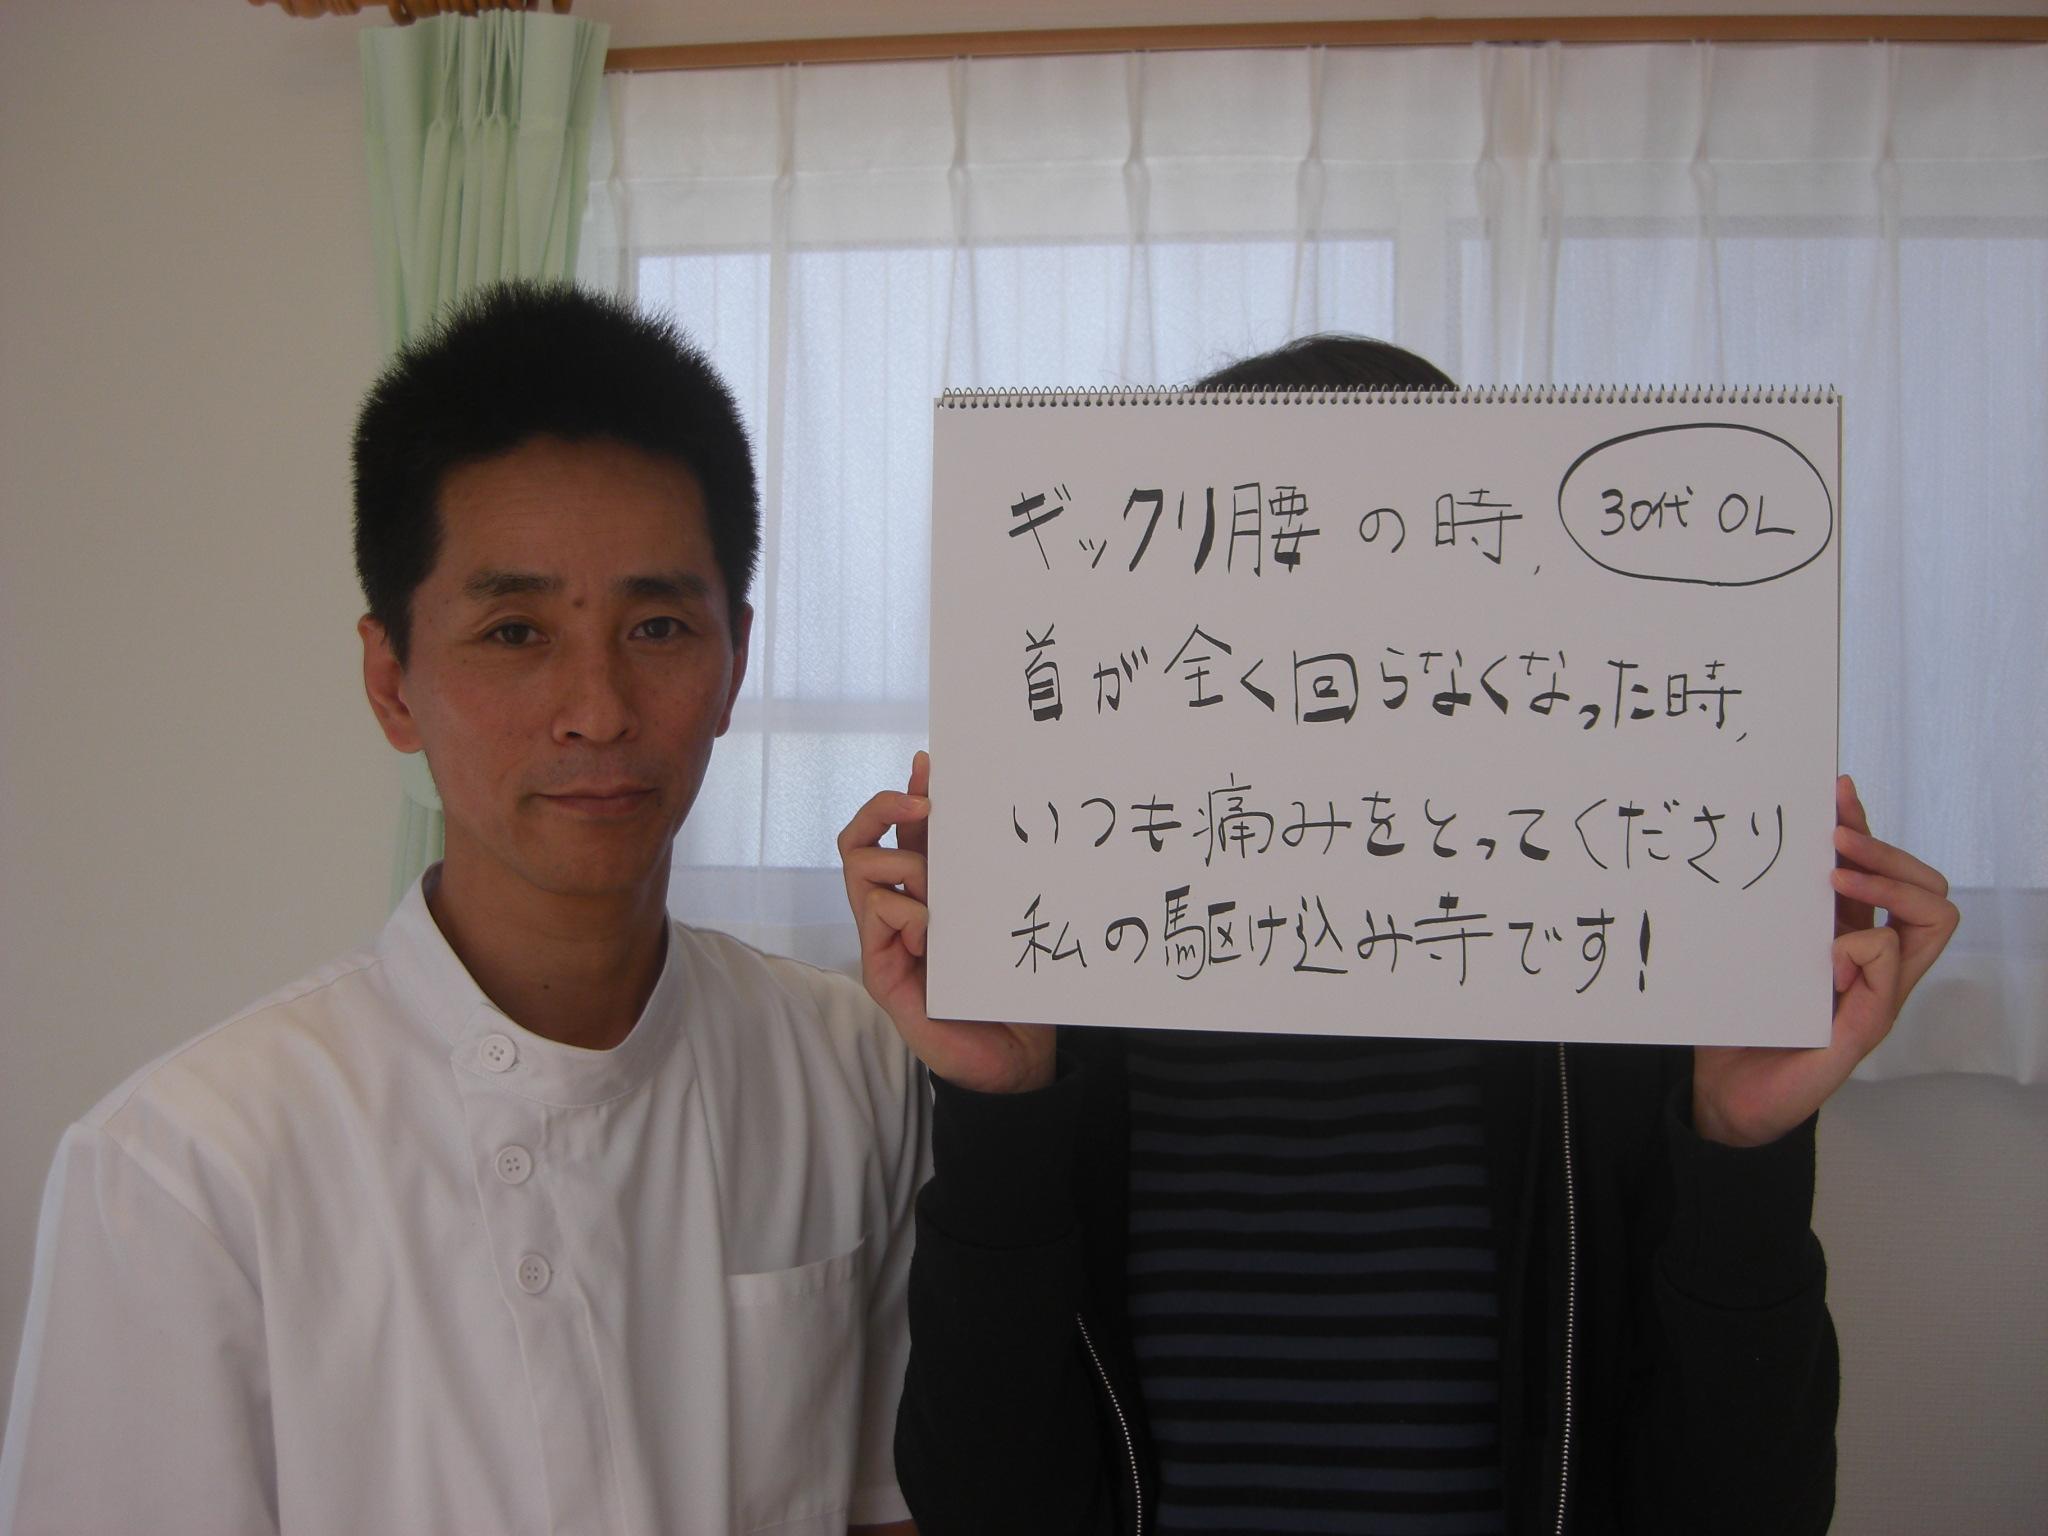 ギックリ腰の時、
30代 OL
首が全く回らなくなった時、
いつも痛みをとってくださり
私の駆け込み寺です!